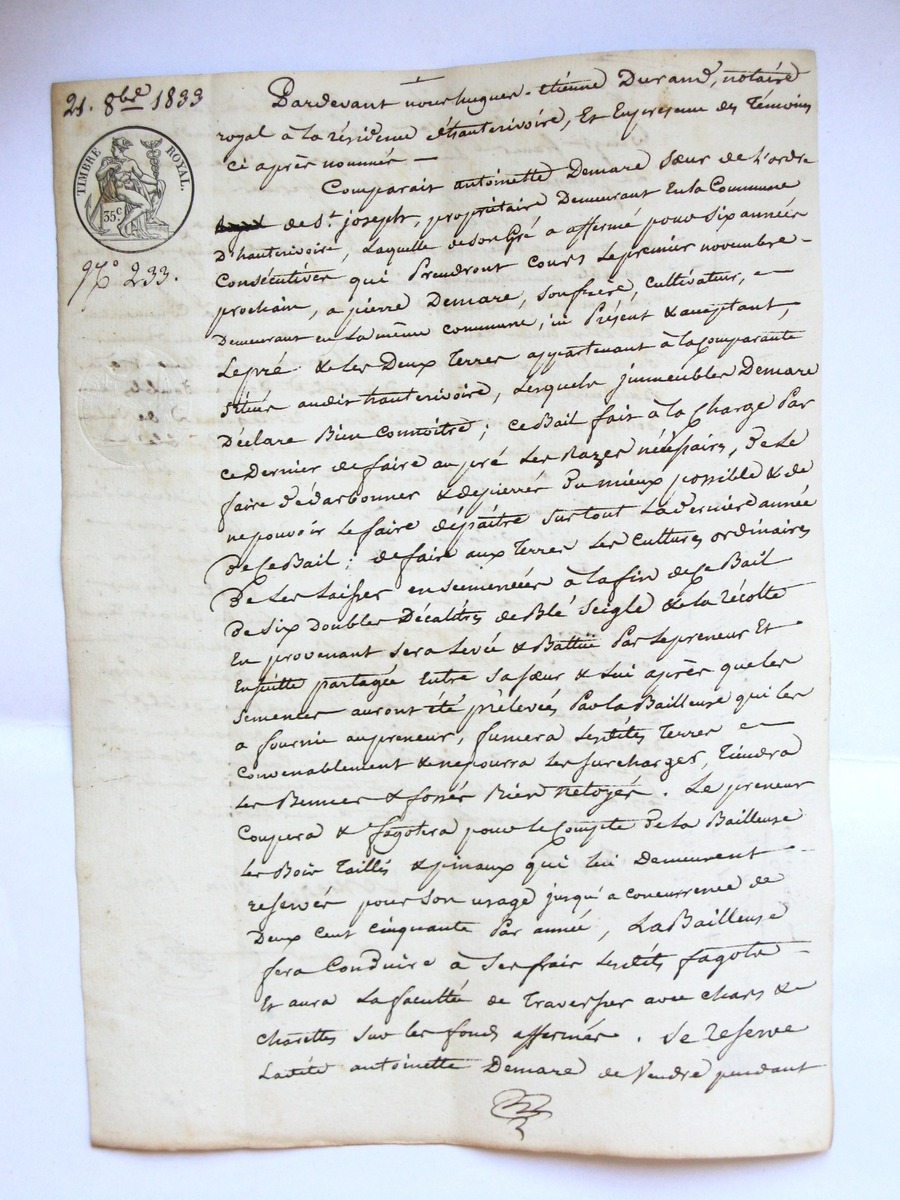 21. 8bre 1833
TIMBRE ROYAL.
35c
No 233.
Pardevant nous hugues-étienne Durand, notaire
royal à la résidence d'hauterivoire, Et En presence des Témoins
ci après nommés —
Comparait antoinette Demare sœur de l'ordre
de St. joseph, propriétaire Demeurant En la Commune
D'hauterivoire, Laquelle de son Gré a affermé pour six années
Consécutives qui Prendront Cours Le premier novembre -
prochain, a pierre Demare, son frère, cultivateur, —
Demeurant en La même commune, ici Présent & acceptant,
Le pré & les Deux Terres appartenant à la Comparante
situés audit hauterivoire, Lesquels jmmeubles Demare
Déclare Bien Connoitre ; ce Bail fait à la Charge Par
ce Dernier de faire au pré Les Razes nécessaires, de Le
faire dédarbonner & depierrer Du mieux possible & de
ne pouvoir Le faire dépaître surtout La dernière année
de Ce Bail ; de faire aux Terres Les Cultures ordinaires
De Les Laisser ensemencées à la fin de Ce Bail
De six Doubles Décalitres de Blé Seigle & de la récolte
En provenant sera Levée & Battüe Par Le preneur Et
Ensuitte partagée Entre sa sœur & Lui après que Les
semences auront été prélevées Par La Bailleuse qui Les
a fournie au preneur, fumera Lesdites Terres —
Convenablement & ne pourra Les surcharger, Tiendra
Les & fossés Bien Netoyés. Le preneur
Coupera & fagotera pour le Compte de La Bailleuse
Les Bois Taillés & pinaux qui Lui Demeurent
reservés pour Son usage jusqu'a concurrence de
Deux Cent Cinquante Par année, La Bailleuse
fera Conduire à Ses frais Lesdits fagots -
Et aura La facultée de Traverser avec chars &
charettes Sur les fonds affermés. Se reserve
Ladite antoinette Demare de Vendre pendant